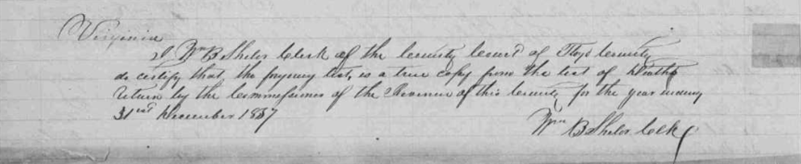 Virginia
I, Wm B Shelor Clerk of the County Court of Floyd County
do certify that, the foregoing list, is a true copy from the list of Deaths
return by the Commissioner of the Revenue of this County for the year ending
31st December 1857
Wm B Shelor Clerk